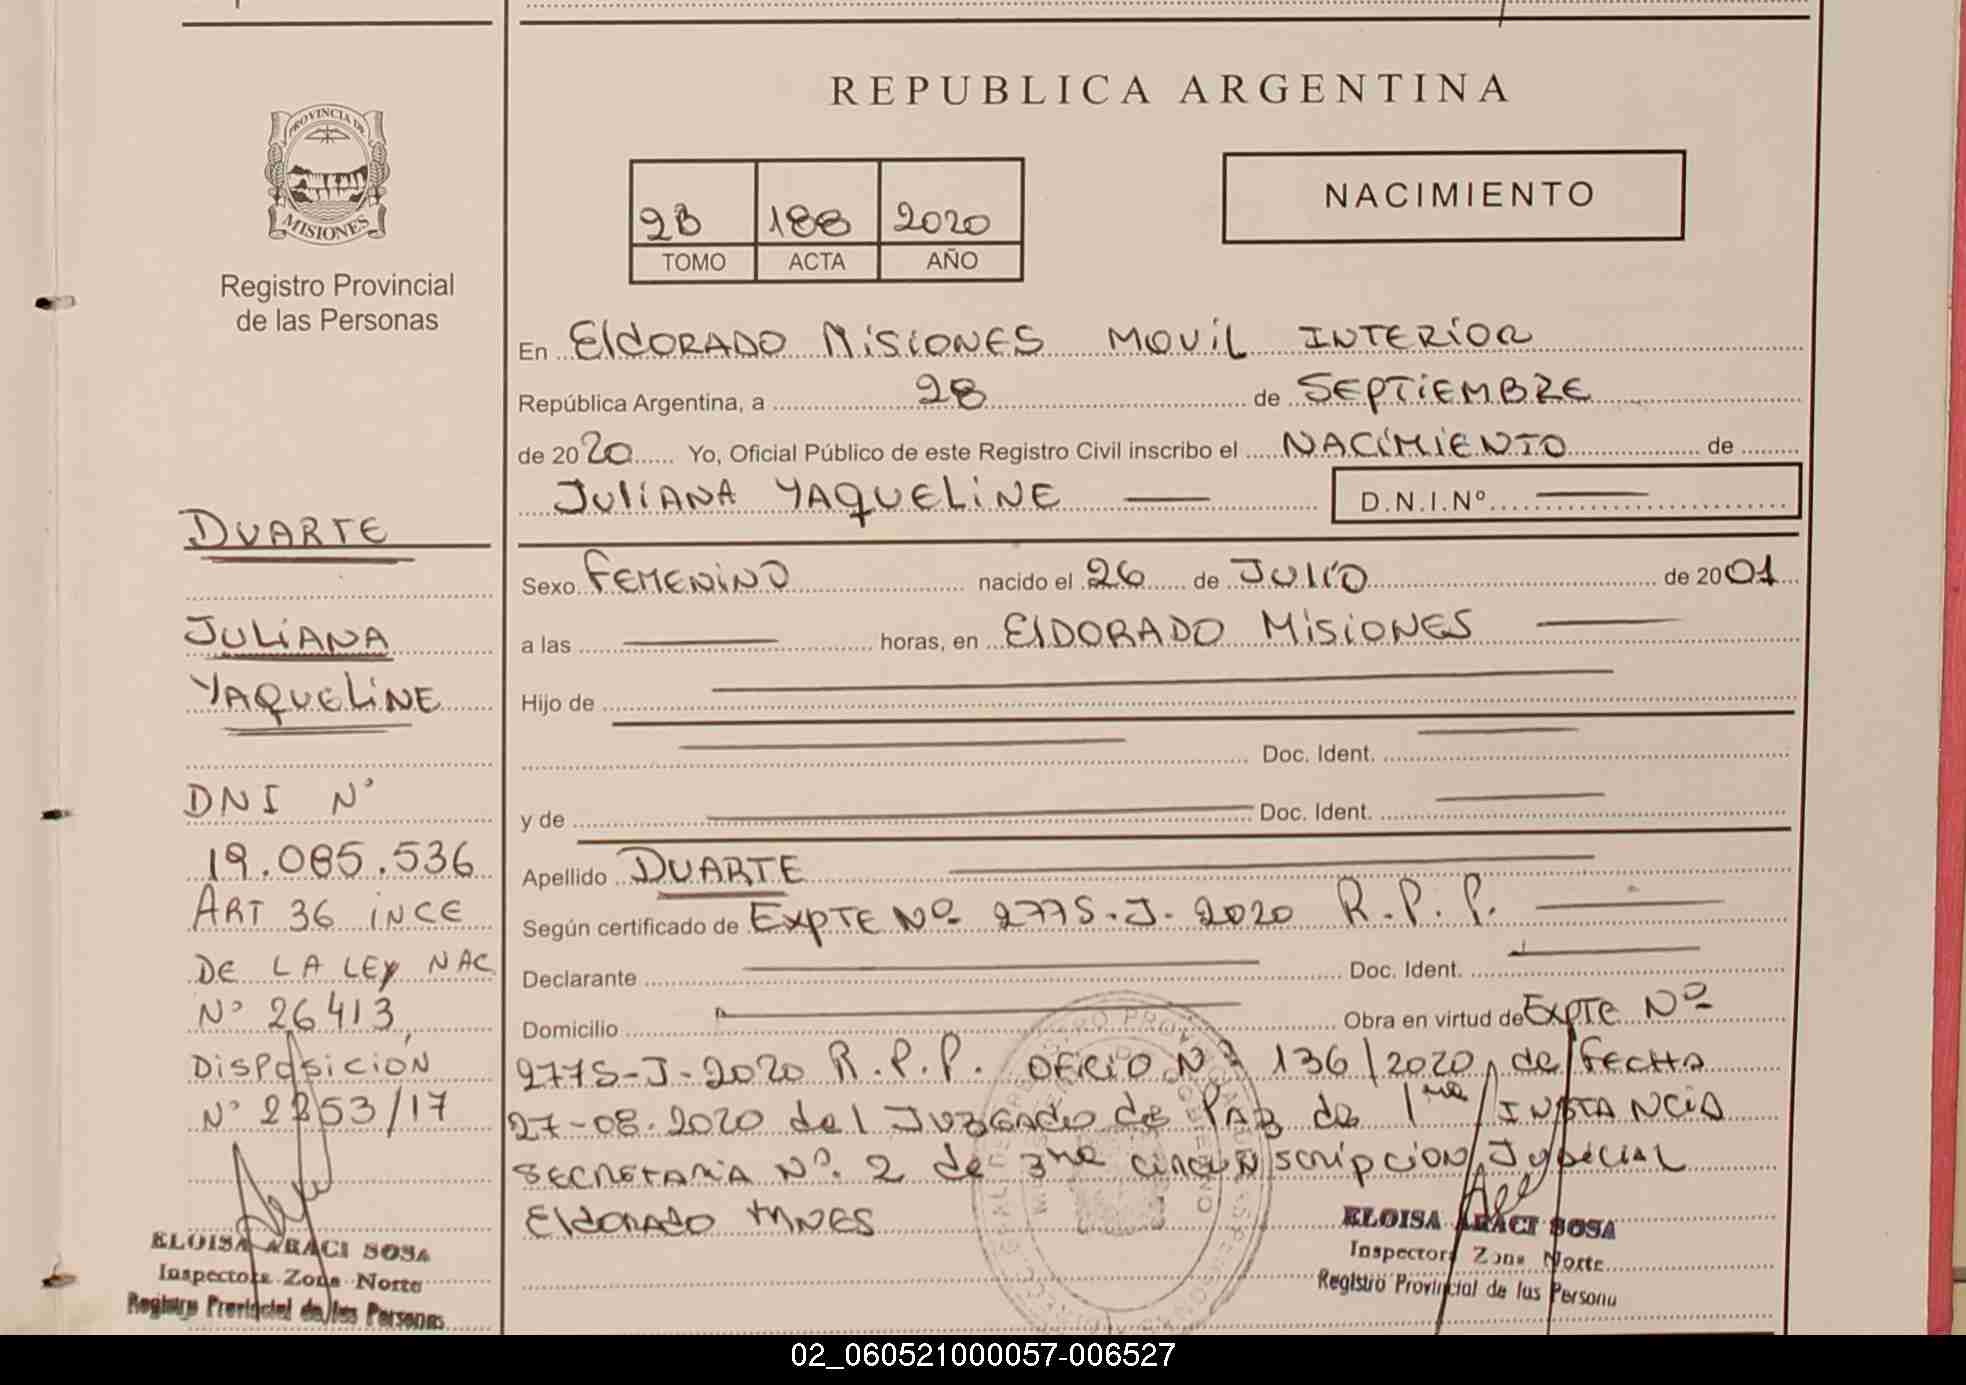 REPUBLICA ARGENTINA
PROVINCIA DE
MISIONES
Registro Provincial
de las Personas
2B 188 2020
TOMO ACTA AÑO
NACIMIENTO
En ElDORADO MiSiONES MOViL INTERiOR
República Argentina, a 28 de SEPTiEMBRE
de 2020 Yo, Oficial Público de este Registro Civil inscribo el NACiMiENTO de
JULiANA YAQUELiNE D.N.I.Nº
Sexo FEMENiNO nacido el 26 de JULiO de 2001
a las horas, en ElDORADO MiSiONES
Hijo de
Doc. Ident.
y de Doc. Ident.
Apellido DUARTE
Según certificado de EXPTE Nº 2775-J-2020 R.P.P.
Declarante Doc. Ident.
Domicilio Obra en virtud de EXPTE Nº
2775-J-2020 R.P.P. OFICIO Nº 136/2020, de FECHA
27-08-2020 del JUZGADO de PAZ de 1ra INSTANCIA
SECRETARIA Nº. 2 de 3ra CIRCUNScripCION JUDICIAL
ElDORADO MNES
ELOISA ARACI SOSA
Inspectora Zona Norte
Registro Provincial de las Persona
DUARTE
JULiANA
YAQUELiNE
DNI Nº
19.085.536
ART 36 iNCE
DE LA LEy NAC
Nº 26413,
DiSPOSiCiÓN
Nº 2253/17
ELOISA ARACI SOSA
Inspectora Zona Norte
Registro Provincial de las Personas
02_060521000057-006527